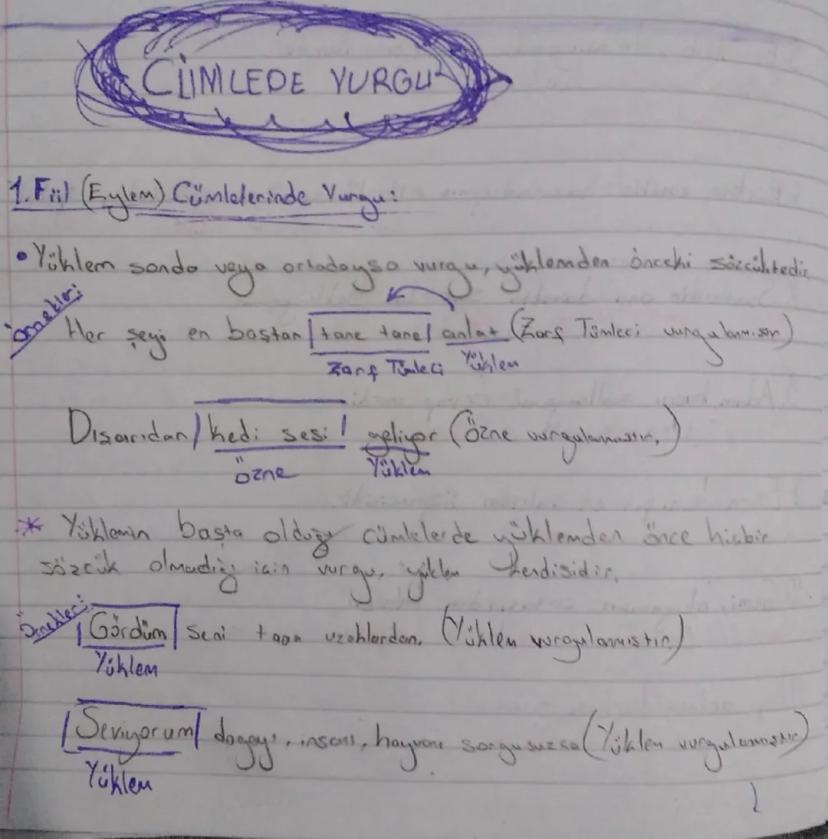 CÜMLEDE VURGU
1. Fiil (Eylem) Cümlelerinde Vurgu:
• Yüklem sonda veya ortadaysa vurgu, yüklemden önceki sözcüktedir.
Örnekler:
Her şeyi en baştan tane tane anlat (Zarf Tümleci vurgulanmıştır)
Zarf Tümleci Yüklem
Dışarıdan kedi sesi geliyor (Özne vurgulanmıştır.)
Özne Yüklem
* Yüklemin başta olduğu cümlelerde yüklemden önce hiçbir
sözcük olmadığı için vurgu, yüklem kendisidir.
Örnekler:
Gördüm seni taaa uzaklardan. (Yüklem vurgulanmıştır)
Yüklem
Seviyorum doğayı, insanı, hayvanı sorgusuzsa (Yüklem vurgulanmıştır)
Yüklem